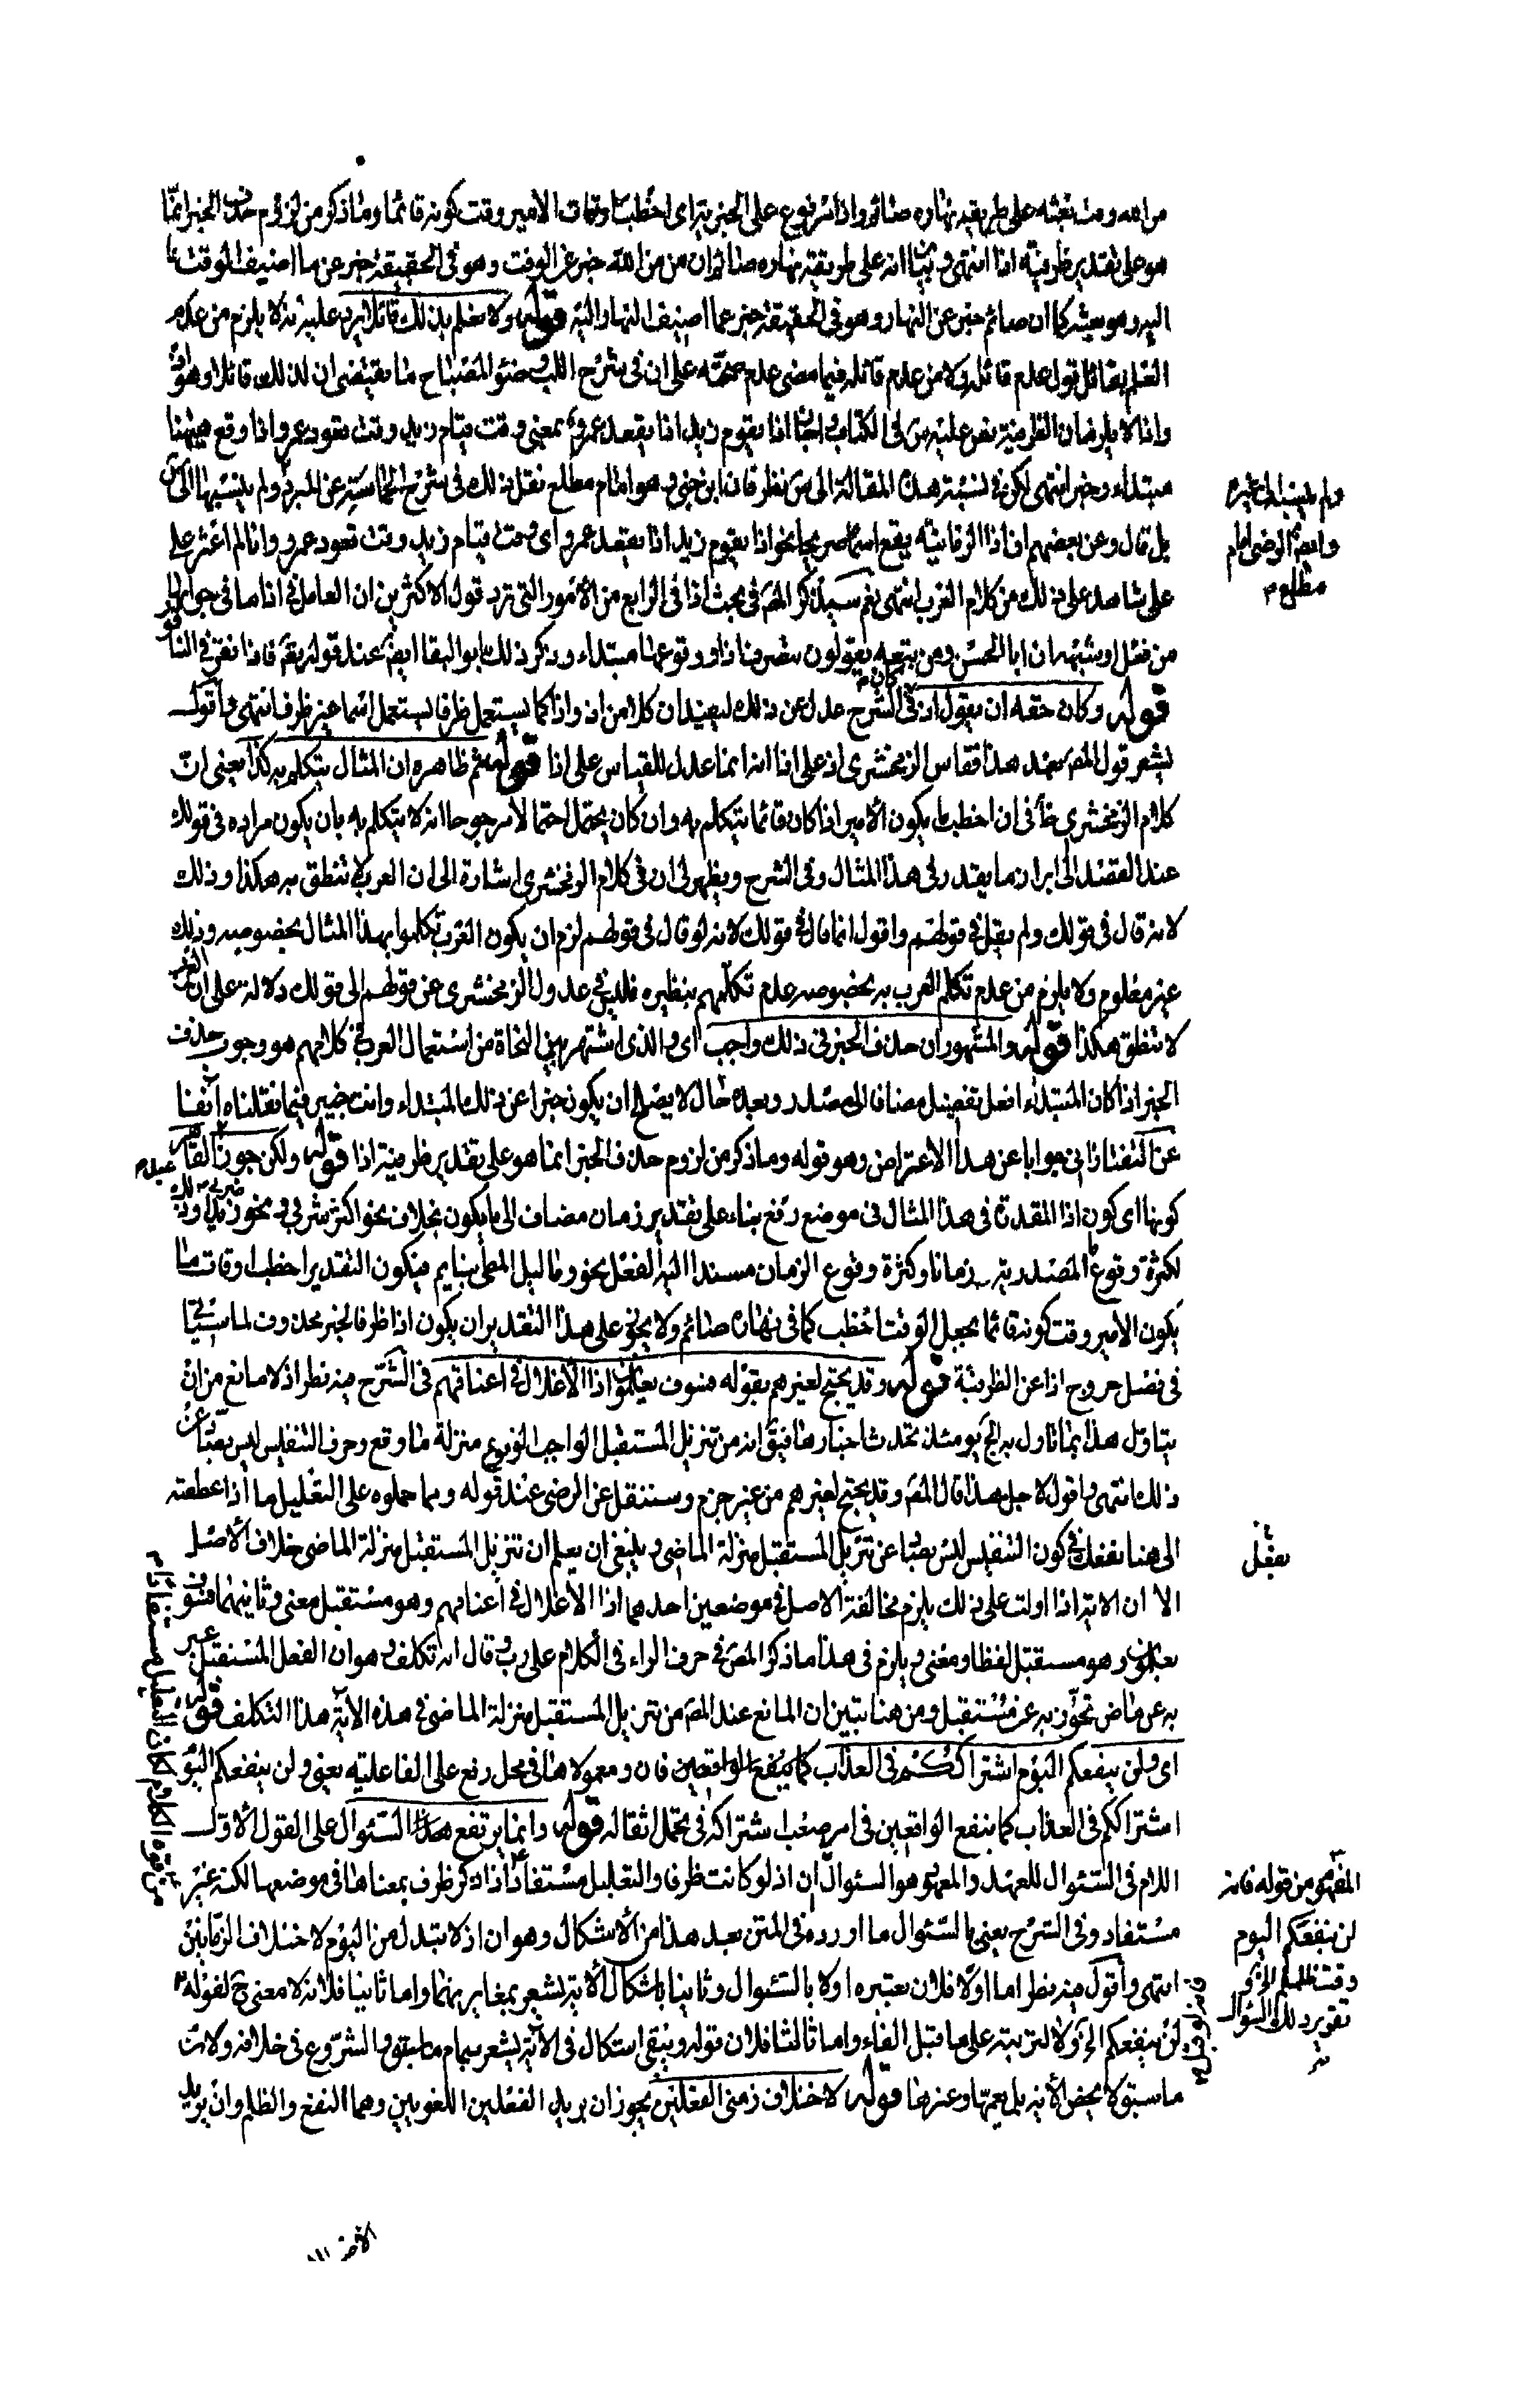 من الله ومن بعثه على طريقة نهاره صائم واذا مرفوع على الخبرية اى اخطب اوقات الامير وقت كونه قائما وما ذكر من لزوم حذف الخبر انما
هو على تقدير ظرفية اذا انتهى انه على طريقة نهاره صائم ان من من الله خبر عن الوقت وهو فى الحقيقة خبر عن ما اضيف الوقت
اليه وهو بعثه كما ان صائم خبر عن النهار وهو فى الحقيقة خبر عما اضيف النهار اليه قوله ولا نعلم بذلك قائلا يرد عليه انه لا يلزم من عدم
العلم بقائل قول عدم قائله ولا من عدم قائله فيما مضى عدم صحته على ان فى شرح اللب وضوء المصباح ما يقتضى ان لذلك قائلا وهو
واذا لا يلزمان الظرفية نص عليه س فى الكتاب اذا يقوم زيد اذا يقعد عمرو بمعنى وقت قيام زيد وقت قعود عمرو اذا وقع ههنا
مبتداء وخبر انتهى لكن فى نسبة هذه المقالة الى س نظر فان ابن جنى وهو امام مطلع نقل ذلك فى شرح الحماسة عن المبرد ولم ينسبها الى س
بل قال وعن بعضهم ان اذا الزمانية يقع اسما صريحا نحو اذا يقوم زيد اذا يقعد عمرو اى وقت قيام زيد وقت قعود عمرو وانا لم اعثر على
على شاهد على ذلك من كلام العرب انتهى نعم سيذكر المص فى بحث اذا فى الرابع من الامور التى ترد قول الاكثرين ان العامل فى اذا ما فى جوابها
من فعل او شبهه ان ابا الحسن ومن تبعه يقولون بتصرف اذا ووقوعها مبتداء وذكر ذلك ابو البقا ايضا عند قوله تعالى فاذا نقر فى الناقور
قوله وكان حقه ان يقول اذ كان فى الشرح عدل عن ذلك ليفيد ان كلا من اذ واذا كما يستعمل ظرفا يستعمل اسما غير ظرف انتهى واقول
يشعر قول المص بعد هذا فقاس الزمخشرى اذ على اذا انه انما عدل للقياس على اذا قوله ثم ظاهره ان المثال يتكلم به كذا يعنى ان
كلام الزمخشرى ظ فى ان اخطب ما يكون الامير اذا كان قائما يتكلم به وان كان يحتمل احتمالا مرجوحا انه لا يتكلم به بان يكون مراده فى قولك
عند القصد الى ابراز ما يقدر فى هذا المثال وفى الشرح ويظهر لى ان فى كلام الزمخشرى اشارة الى ان العرب لا تنطق به هكذا وذلك
لانه قال فى قولك ولم يقل فى قولهم واقول انما قال فى قولك لانه لو قال فى قولهم لزم ان يكون العرب تكلموا بهذا المثال بخصوصه وذلك
غير معلوم ولا يلزم من عدم تكلم العرب به بخصوصه عدم تكلمهم بنظيره فليس فى عدول الزمخشرى عن قولهم الى قولك دلالة على ان العرب
لا تنطق هكذا قوله والمشهور ان حذف الخبر فى ذلك واجب اى والذى اشتهر بين النحاة من استعمال العرب فى كلامهم هو وجوب حذف
الخبر اذا كان المبتداء افعل تفضيل مضافا الى مصدر وبعده حال لا يصلح ان يكون خبرا عن ذلك المبتداء وانت خبير فيما نقلناه آنفا
عن التفتازانى جوابا عن هذا الاعتراض وهو قوله وما ذكر من لزوم حذف الخبر انما هو على تقدير ظرفية اذا قوله ولكن جوز عبد القاهر
كونها اى كون اذا المقدرة فى هذا المثال فى موضع رفع بناء على تقدير زمان مضاف الى ما يكون بخلاف نحو اكثر شربى ونحو ضربى زيدا وذلك
لكثرة وقوع ما المصدرية زمانا وكثرة وقوع الزمان مسندا اليه الفعل نحو وما ليل المطى بنايم فيكون التقدير اخطب اوقات ما
يكون الامير وقت كونه قائما بجعل الوقت اخطب كما فى نهاره صائم ولا يجئ على هذا التقدير ان يكون اذا ظرفا لخبر محذوف لما سيأتى
فى فصل خروج اذا عن الظرفية قوله وقد يحتج لغيرهم بقوله فسوف يعلمون اذ الاغلال فى اعناقهم فى الشرح فيه نظر اذ لا مانع من ان
يتاول هذا بما تاول به الج يومئذ تحدث اخبارها فيق انه من تنزيل المستقبل الواجب الوقوع منزلة ما وقع وحرف التنفيس ليس يعتبا عن
ذلك انتهى واقول لاجل هذا قال المص وقد يحتج لغيرهم من غير جزم وسننقل عن الرضى عند قوله ومما حملوه على التعليل ما اذا عطفته
الى هنا نفعك فى كون التنفيس ليس يعتبا عن تنزيل المستقبل منزلة الماضى وينبغى ان يعلم ان تنزيل المستقبل منزلة الماضى خلاف الاصل
الا ان الاية اذا اولت على ذلك يلزم مخالفة الاصل فى موضعين احدهما اذ الاغلال فى اعناقهم وهو مستقبل معنى وثانيهما فسوف
يعلمون وهو مستقبل لفظا ومعنى ويلزم فى هذا ما ذكر المص فى حرف الراء فى الكلام على رب وقال انه تكلف وهو ان الفعل المستقبل عبر
به عن ماض تجوز به عن مستقبل ومن هنا تبين ان المانع عند المص من تنزيل المستقبل منزلة الماضى فى هذه الاية هذا التكلف قوله
اى ولن ينفعكم اليوم اشتراككم فى العذاب كما ينفع الواقعين فان ومعمولاها فى محل رفع على الفاعلية يعنى ولن ينفعكم اليوم
اشتراككم فى العذاب كما ينفع الواقعين فى امر صعب اشتراكه فى تحمل اثقاله قوله وانما يرتفع هذا السئوال على القول الاول
اللام فى السئوال للعهد والمعهود هو السئوال ان اذ لو كانت ظرفا والتعليل مستفادا اذا ذكر ظرف بمعناها فى موضعها لكنه غير
مستفاد وفى الشرح يعنى بالسئوال ما اورده فى المتن بعد هذا من الاشكال وهو ان اذ لا تبدل من اليوم لاختلاف الزمانين
انتهى واقول فيه نظر اما اولا فلان تعبيره اولا بالسئوال وثانيا باشكال الاية يشعر بمغايرتهما واما ثانيا فلانه لا معنى ح لقوله
لن ينفعكم الخ ولا لترتبه على ما قبل الفاء واما ثالثا فلان قوله ويبقى اشكال فى الاية يشعر بتمام ما سبق والشروع فى خلافه ولان
ما سبق لا يخص الاية بل يعمها وغيرها قوله لاختلاف زمنى الفعلين يجوز ان يريد الفعلين اللغويين وهما النفع والظلم وان يريد
ولم ينسبها الى غيره
وايضا الرضى امام
مطلع م
يفعل
المفهوم من قوله فانه
لن ينفعكم اليوم
وقت ظلمكم الخ هو
تقرير ذلك السئوال